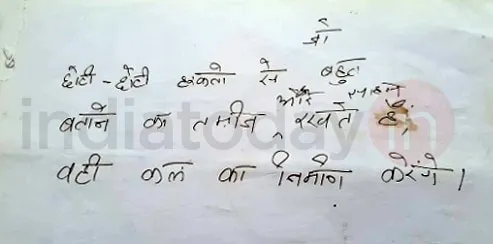 जो
छोटी-छोटी से बहुत
और
बताने का तमीज, रखते हैं,
वही कल का निर्माण करेंगे।
indiatoday.in